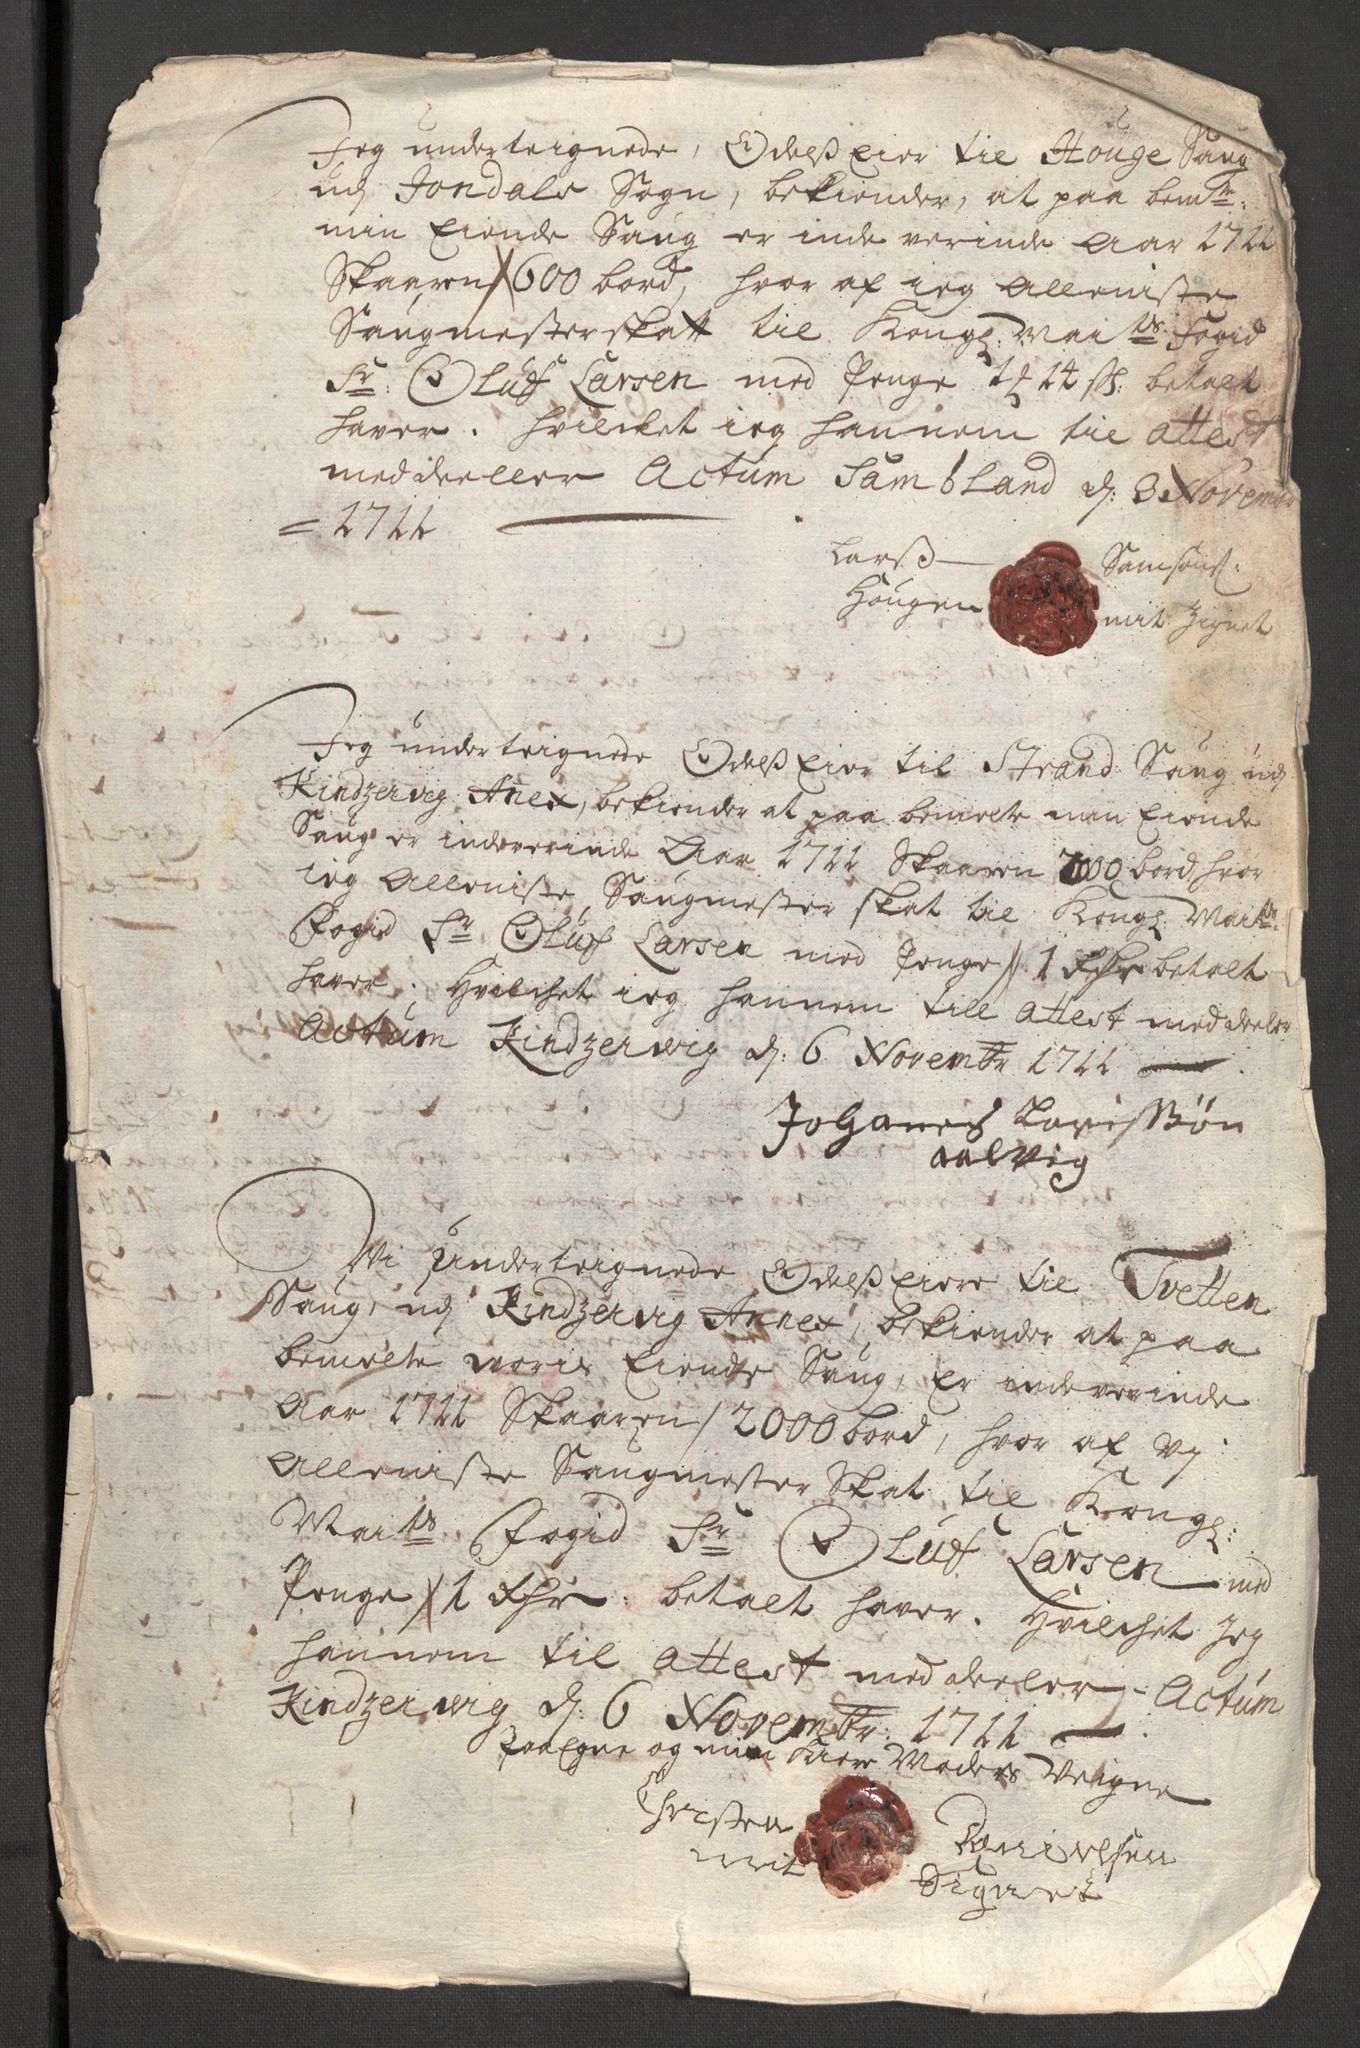 Jeg underteignede, Odelß Eier til Houge Saug
udj Jondals Sogn, bekiender, at paa bemte:
min Eiende Saug er inde verinde Aar 1711
Skaaren 600 bord, hvor af ieg Alleniste
Saugmesterskatt til Kongl: Maits Fogid
Sr: Oluff Larsen med Penge 14 ß: betalt
haver. Hvilcket ieg hannem til Attest
meddeeller Actum Samsland d: 3 Novembr
= 1711
Larß Samsons:
Hougen mit Zignet
Jeg underteignede Odelß Eier til Strand Saug udj
Kindzervig Anex, bekiender at paa bemelte min Eiende
Saug er indeverinde Aar 1711 Skaaren 2000 bord, hvor
ieg Alleniste Saugmester skat til Kongl Maits:
Fogid Sr Oluff Larsen med Penge // 1 Rdr betalt
haver. Hvilchet ieg hannem till Attest meddeeler
Actum Kindzervig d: 6 Novembr 1711
Johanes Larisßøn
aalvig
Wi Underteignede Odelß Eiere til Tvetten
Saug, udj Kindzervig Annex, bekiender at paa
bemelte woris Eiende Saug, er indeverinde
Aar 1711 Skaaren / 2000 bord, hvor af Vj
Alleniste Saugmester Skat til Kongl:
Maits Fogid Sr Oluff Larsen med
Penge // 1 Rdr. betalt haver. Hvilchet Jeg
hannem til Attest meddeeler - Actum
Kindzervig d: 6 Novembr: 1711
Paa Egne og min Kiere Moders Veigne
Christen Danielsen
mit Signet